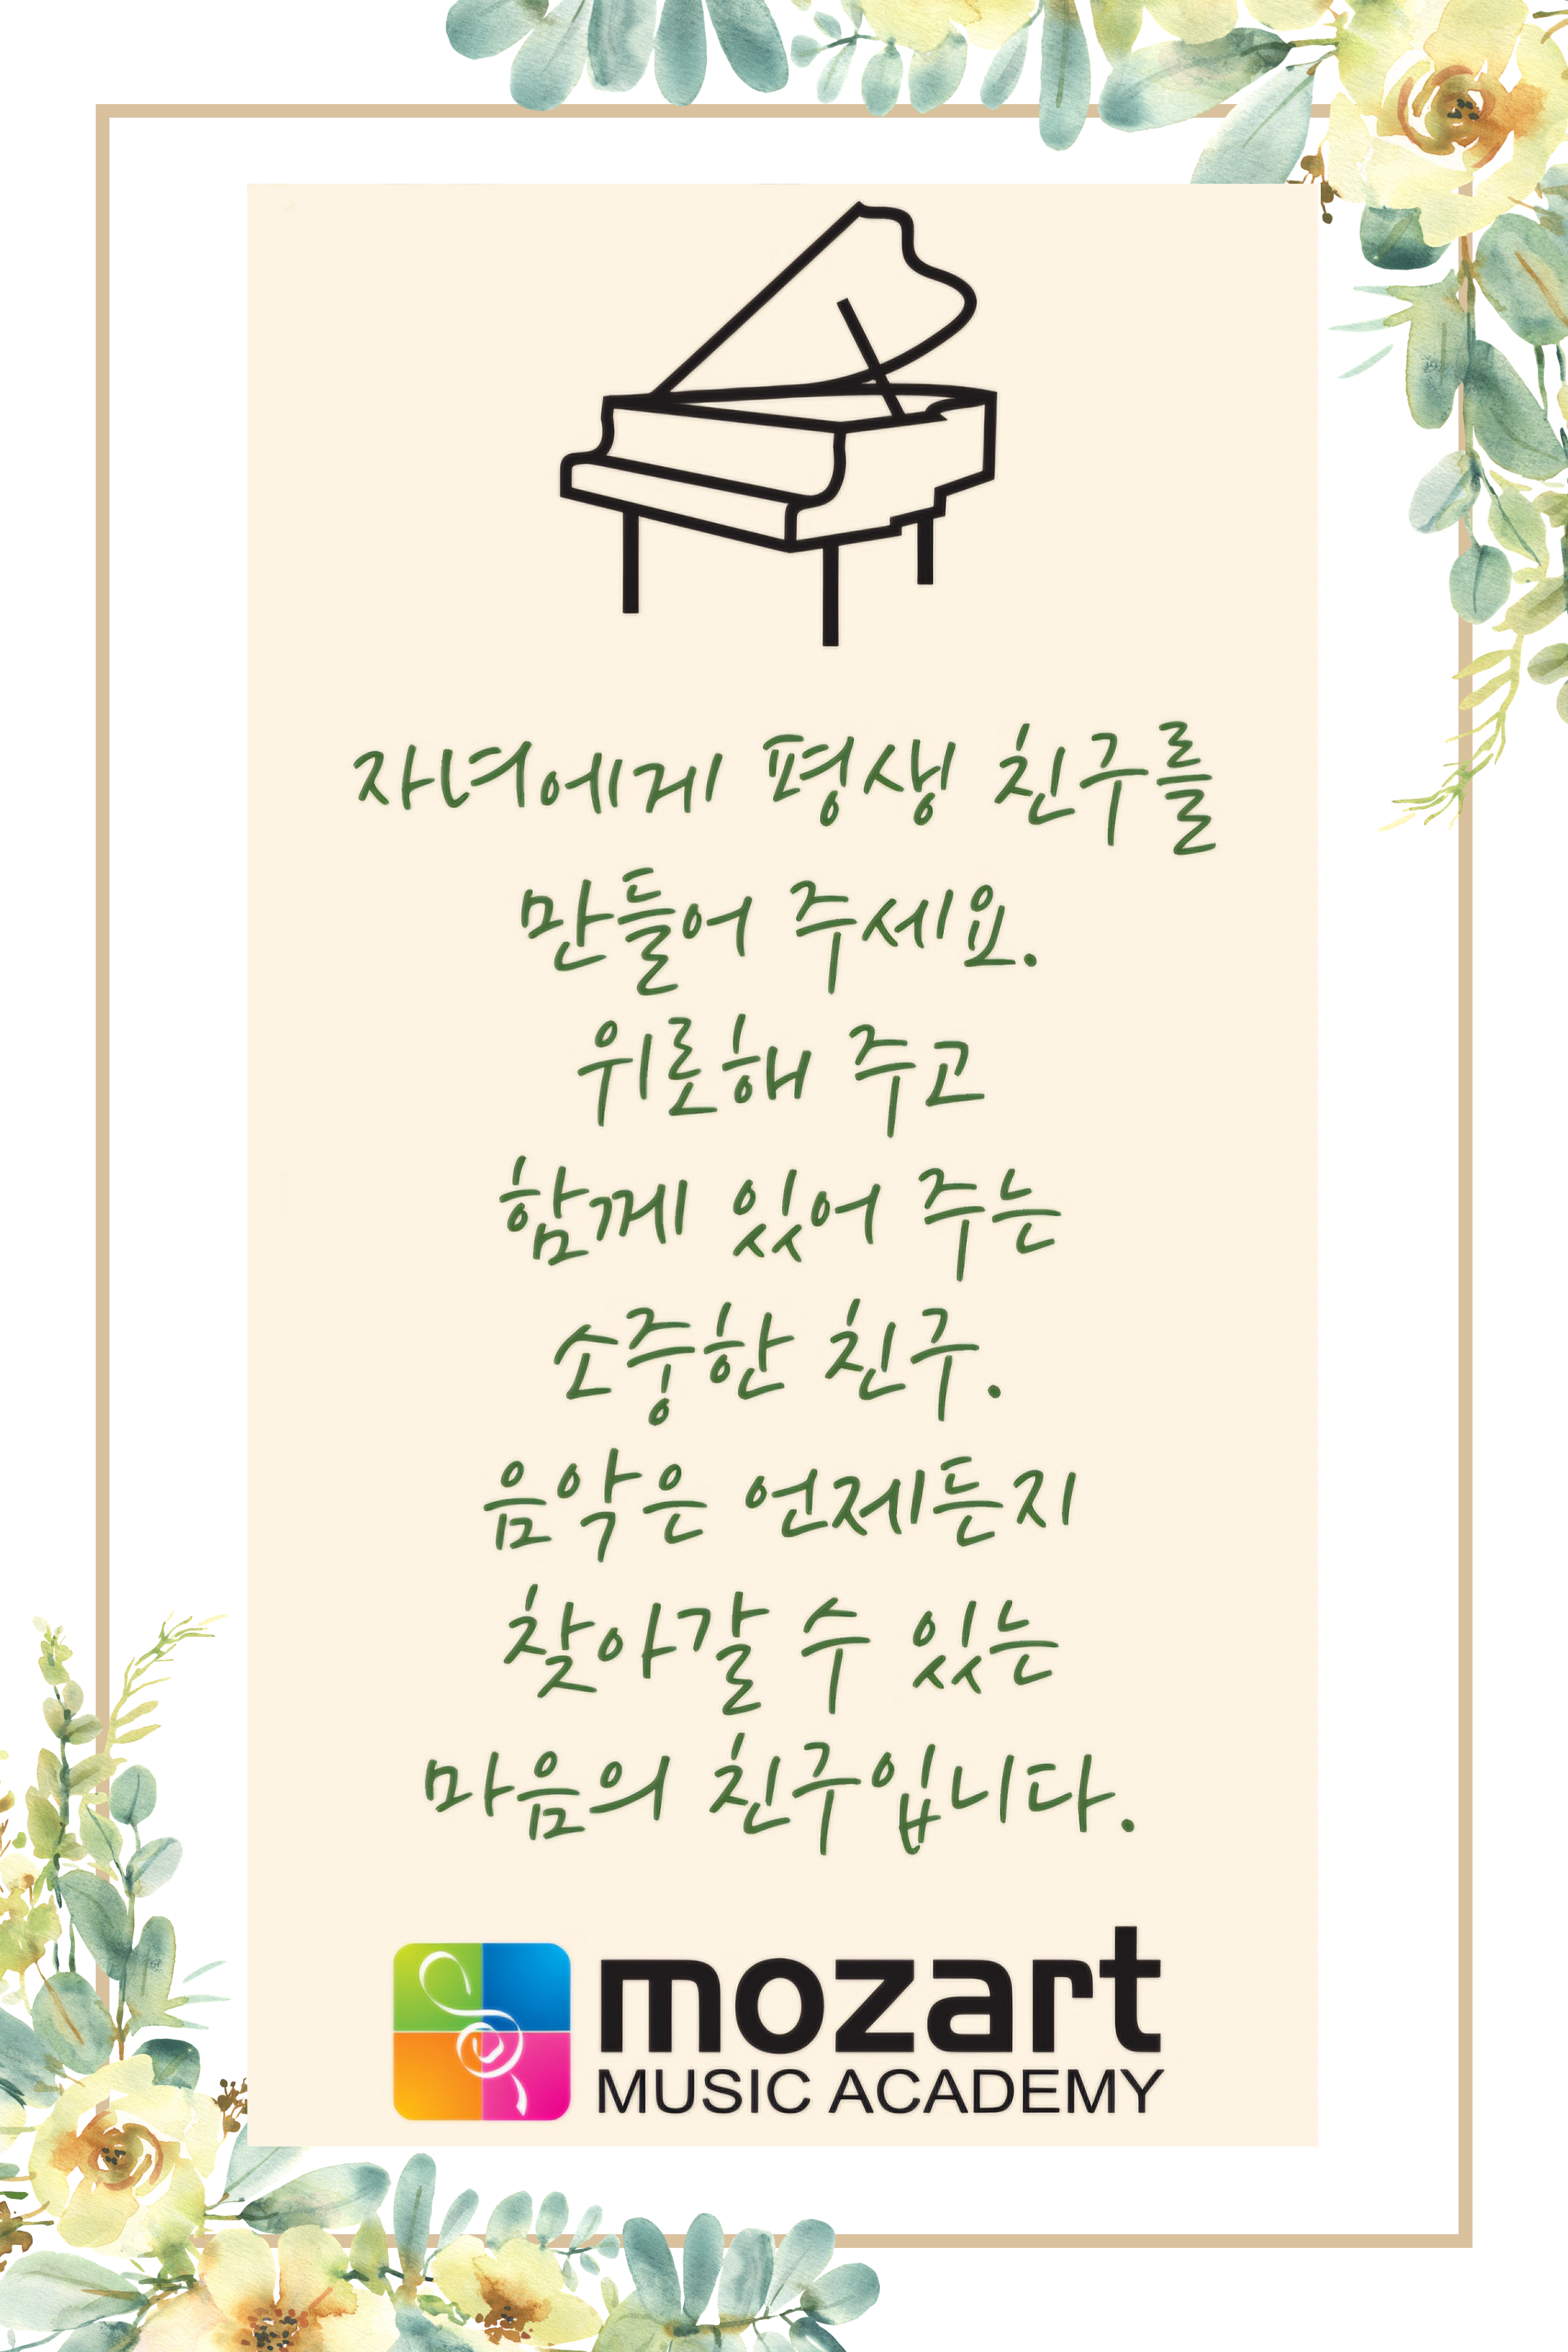 자녀에게 평생 친구를
만들어 주세요.
위롯해 주고
함께 있어 주는
소중한 친구.
음악은 언제든지
찾아갈 수 있는
마음의 친구입니다.
mozart
MUSIC ACADEMY